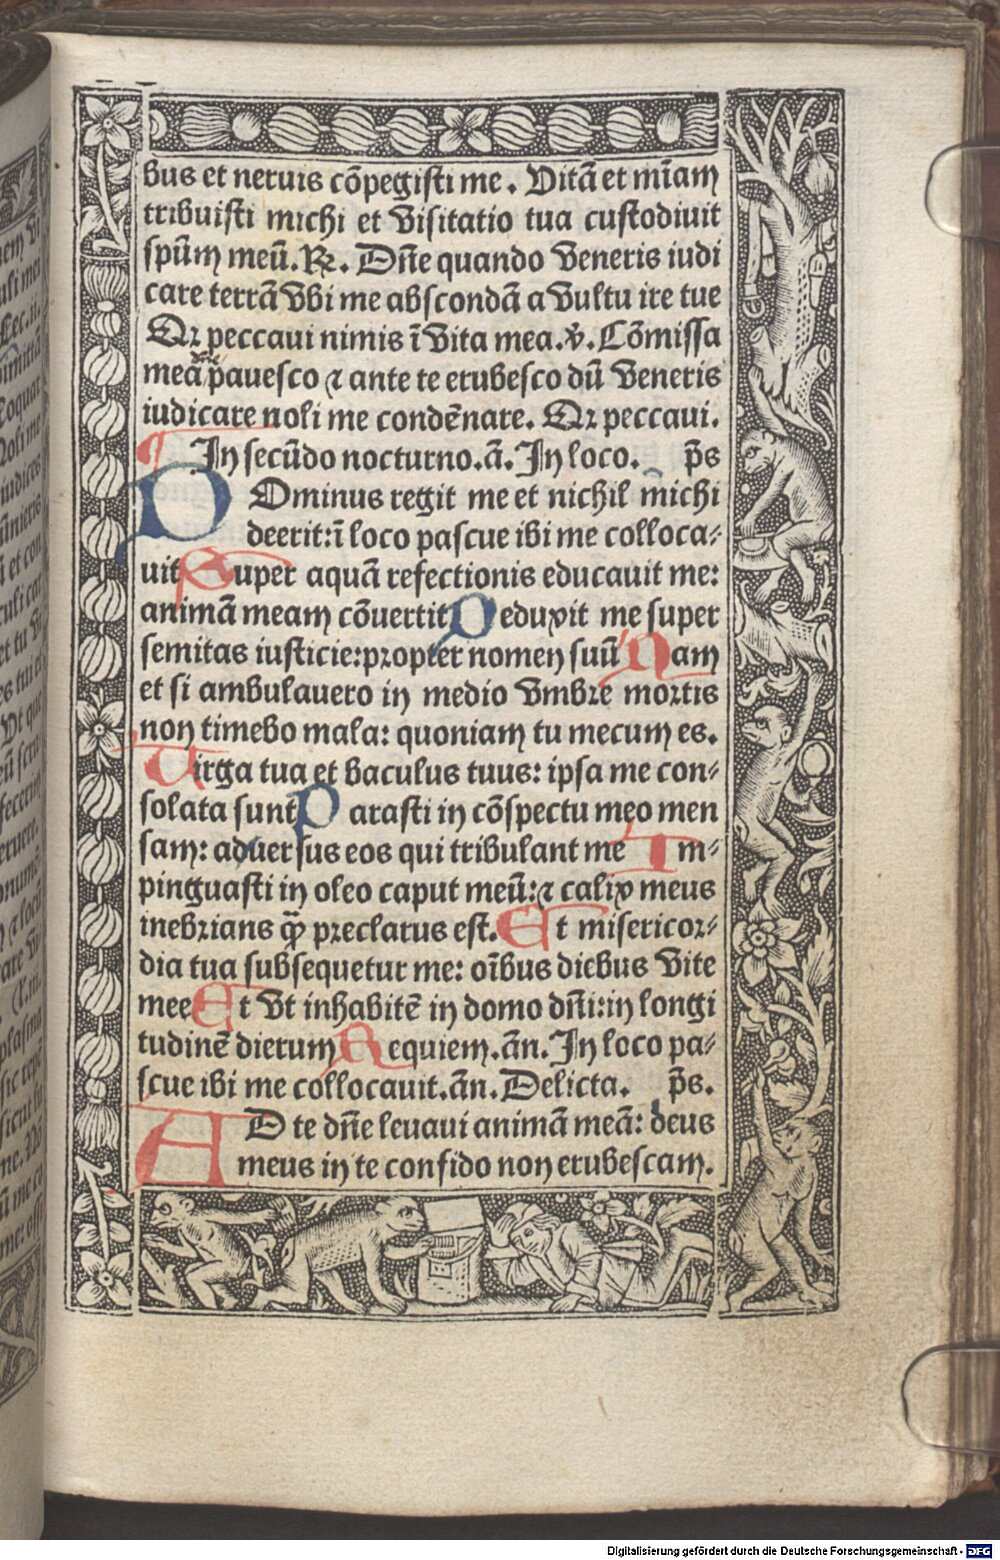 bus et neruis cõpegisti me. Vitã et mĩam
tribuisti michi et visitatio tua custodiuit
spũm meũ. ℟. Dñe quando veneris iudi
care terrã vbi me abscondã a vultu ire tue
Qꝛ peccaui nimis ĩ vita mea. ℣. Cõmissa
dñe
mea pauesco ⁊ ante te erubesco dũ veneris
iudicare noli me condẽnare. Qꝛ peccaui.
In secũdo nocturno. ã. In loco. p̃s
DOminus regit me et nichil michi
deerit: ĩ loco pascue ibi me colloca⸗
uit Super aquã refectionis educauit me:
animã meam cõuertit Deduxit me super
semitas iusticie: propter nomen suũ Nam
et si ambulauero in medio vmbre mortis
non timebo mala: quoniam tu mecum es.
Virga tua et baculus tuus: ipsa me con⸗
solata sunt Parasti in cõspectu meo men
sam: aduersus eos qui tribulant me Im⸗
pinguasti in oleo caput meũ: ⁊ calix meus
inebrians q̃ȝ preclarus est. Et misericor⸗
dia tua subsequetur me: oĩbus diebus vite
mee Et vt inhabitẽ in domo dñi: in longi
tudinẽ dierum Requiem. ãn. In loco pa⸗
scue ibi me collocauit. ãn. Delicta. p̃s.
AD te dñe leuaui animã meã: deus
meus in te confido non erubescam.
Digitalisierung gefördert durch die Deutsche Forschungsgemeinschaft - DFG